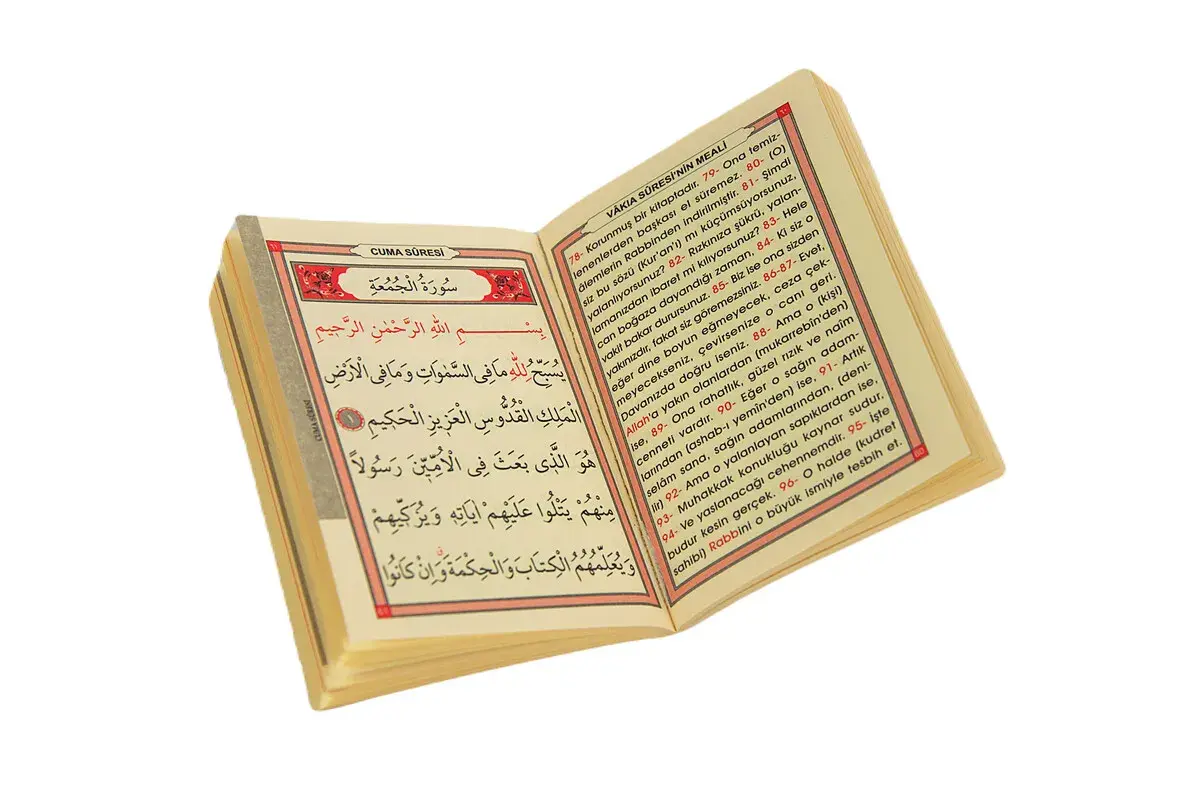 ٦٠
VÂKIA SÛRESİ'NİN MEALİ
78- Korunmuş bir kitaptadır. 79- Ona temiz-
lenenlerden başkası el süremez. 80- (O)
âlemlerin Rabbinden indirilmiştir. 81- Şimdi
siz bu sözü (Kur'an'ı) mı küçümsüyorsunuz,
yalanlıyorsunuz? 82- Rızkınıza şükrü, yalan-
lamanızdan ibaret mi kılıyorsunuz? 83- Hele
can boğaza dayandığı zaman, 84- Ki siz o
vakit bakar durursunuz. 85- Biz ise ona sizden
yakınızdır, fakat siz göremezsiniz. 86-87- Evet,
eğer dine boyun eğmeyecek, ceza çek-
meyecekseniz, çevirsenize o canı geri.
Davanızda doğru iseniz. 88- Ama o (kişi)
Allah'a yakın olanlardan (mukarrebîn'den)
ise, 89- Ona rahatlık, güzel rızık ve naîm
cenneti vardır. 90- Eğer o sağın adam-
larından (ashab-ı yemîn'den) ise, 91- Artık
selâm sana, sağın adamlarından, (deni-
lir) 92- Ama o yalanlayan sapıklardan ise,
93- Muhakkak konukluğu kaynar sudur,
94- Ve yaslanacağı cehennemdir. 95- İşte
budur kesin gerçek. 96- O halde (kudret
sahibi) Rabbini o büyük ismiyle tesbih et.
60
٦١
CUMA SÛRESİ
سُورَةُ الْجُمُعَةِ
بِسْمِ اللّٰهِ الرَّحْمٰنِ الرَّحٖيمِ
يُسَبِّحُ لِلّٰهِ مَا فِى السَّمٰوَاتِ وَمَا فِى الْاَرْضِ
الْمَلِكِ الْقُدُّوسِ الْعَزٖيزِ الْحَكٖيمِ ١
هُوَ الَّذٖى بَعَثَ فِى الْاُمِّيّٖنَ رَسُولاً
مِنْهُمْ يَتْلُوا عَلَيْهِمْ اٰيَاتِهٖ وَيُزَكّٖيهِمْ
وَيُعَلِّمُهُمُ الْكِتَابَ وَالْحِكْمَةَ وَاِنْ كَانُوا
61
CUMA SÛRESİ